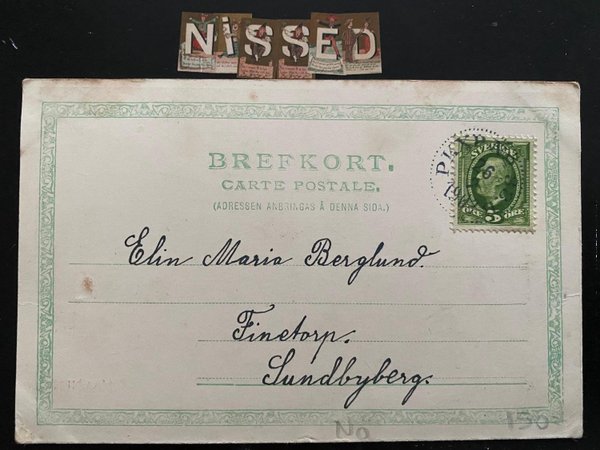 NISSED
BREFKORT.
CARTE POSTALE.
(ADRESSEN ANBRINGAS Å DENNA SIDA.)
SVERIGE
5 ÖRE
Elin Maria Berglund.
Finetorp.
Sundbyberg.
No 150:-